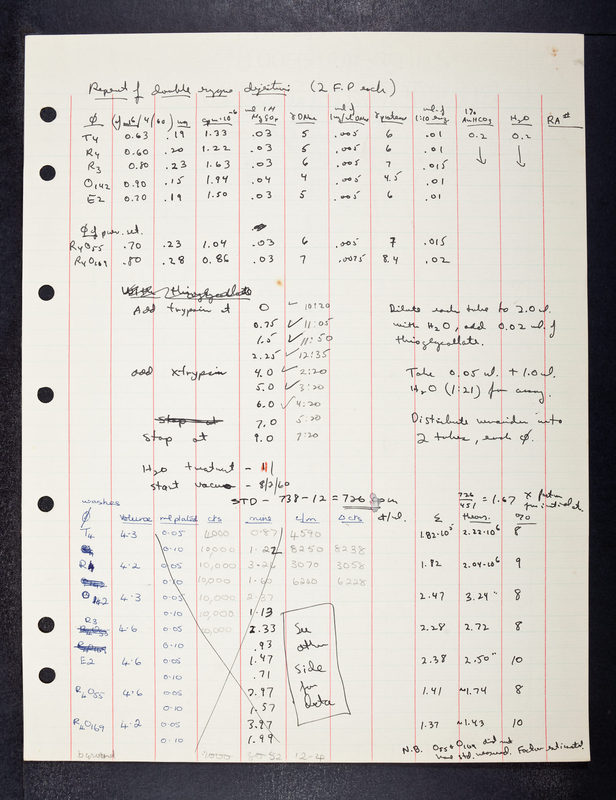 Repeat of double enzyme digestions (2 F.P each)
Ø (7/16/4/60) mg cpm·10⁻⁶ ml 1M MgSO₄ γ DNase ml of 1mg/ml DNase γ protein ml. of 1:10 enz 1% AmHCO₃ H₂O RA#
T4 0.63 .19 1.33 .03 5 .005 6 .01 0.2 0.2
R4 0.60 .20 1.22 .03 6 .005 6 .01
R3 0.80 .23 1.63 .03 6 .005 7 .015
O142 0.90 .15 1.94 .04 4 .005 4.5 .01
E2 0.70 .19 1.50 .03 5 .005 6 .01
R4O55 .70 .23 1.04 .03 6 .005 7 .015
R4O169 .80 .28 0.86 .03 7 .0075 8.4 .02
Add trypsin at 0 ✓ 10:20
0.75 ✓ 11:05
1.5 ✓ 11:50
2.25 ✓ 12:35
add x-trypsin 4.0 ✓ 2:20
5.0 ✓ 3:20
6.0 ✓ 4:20
stop at 7.0 5:20
Stop at 9.0 7:20
Dilute each tube to 2.0 ml.
with H₂O, add 0.02 ml. of
thioglycollate.
Take 0.05 ml. + 1.0 ml.
H₂O (1:21) for assay.
Distribute remainder into
2 tubes, each Ø.
H₂O treatment - 11
start vacuo - 8/2/60
STD - 738-12 = 726 cpm
726/451 = 1.67 x
washes
Ø Volume ml plated cts mins c/m Δ cts ct/ml. Σ theor. %
T4 4.3 0.05 4,000 0.87 4590 1.82·10⁵ 2.22·10⁶ 8
0.10 10,000 1.22 8250 8238
R4 4.2 0.05 10,000 3.26 3070 3058 1.82 2.04·10⁶ 9
0.10 10,000 1.60 6240 6228
O142 4.3 0.05 10,000 2.37 2.47 3.24" 8
0.10 10,000 1.13
R3 4.6 0.05 10,000 2.33 2.28 2.72 8
0.10 .93
E2 4.6 0.05 1.47 2.38 2.50" 10
0.10 .71
R4O55 4.6 0.05 2.97 1.41 ~1.74 8
0.10 1.57
R4O169 4.2 0.05 3.97 1.37 ~1.43 10
0.10 1.99
See
other
side
for
data
N.B. O55 & O169 did not
have std. measured. Factor estimated.